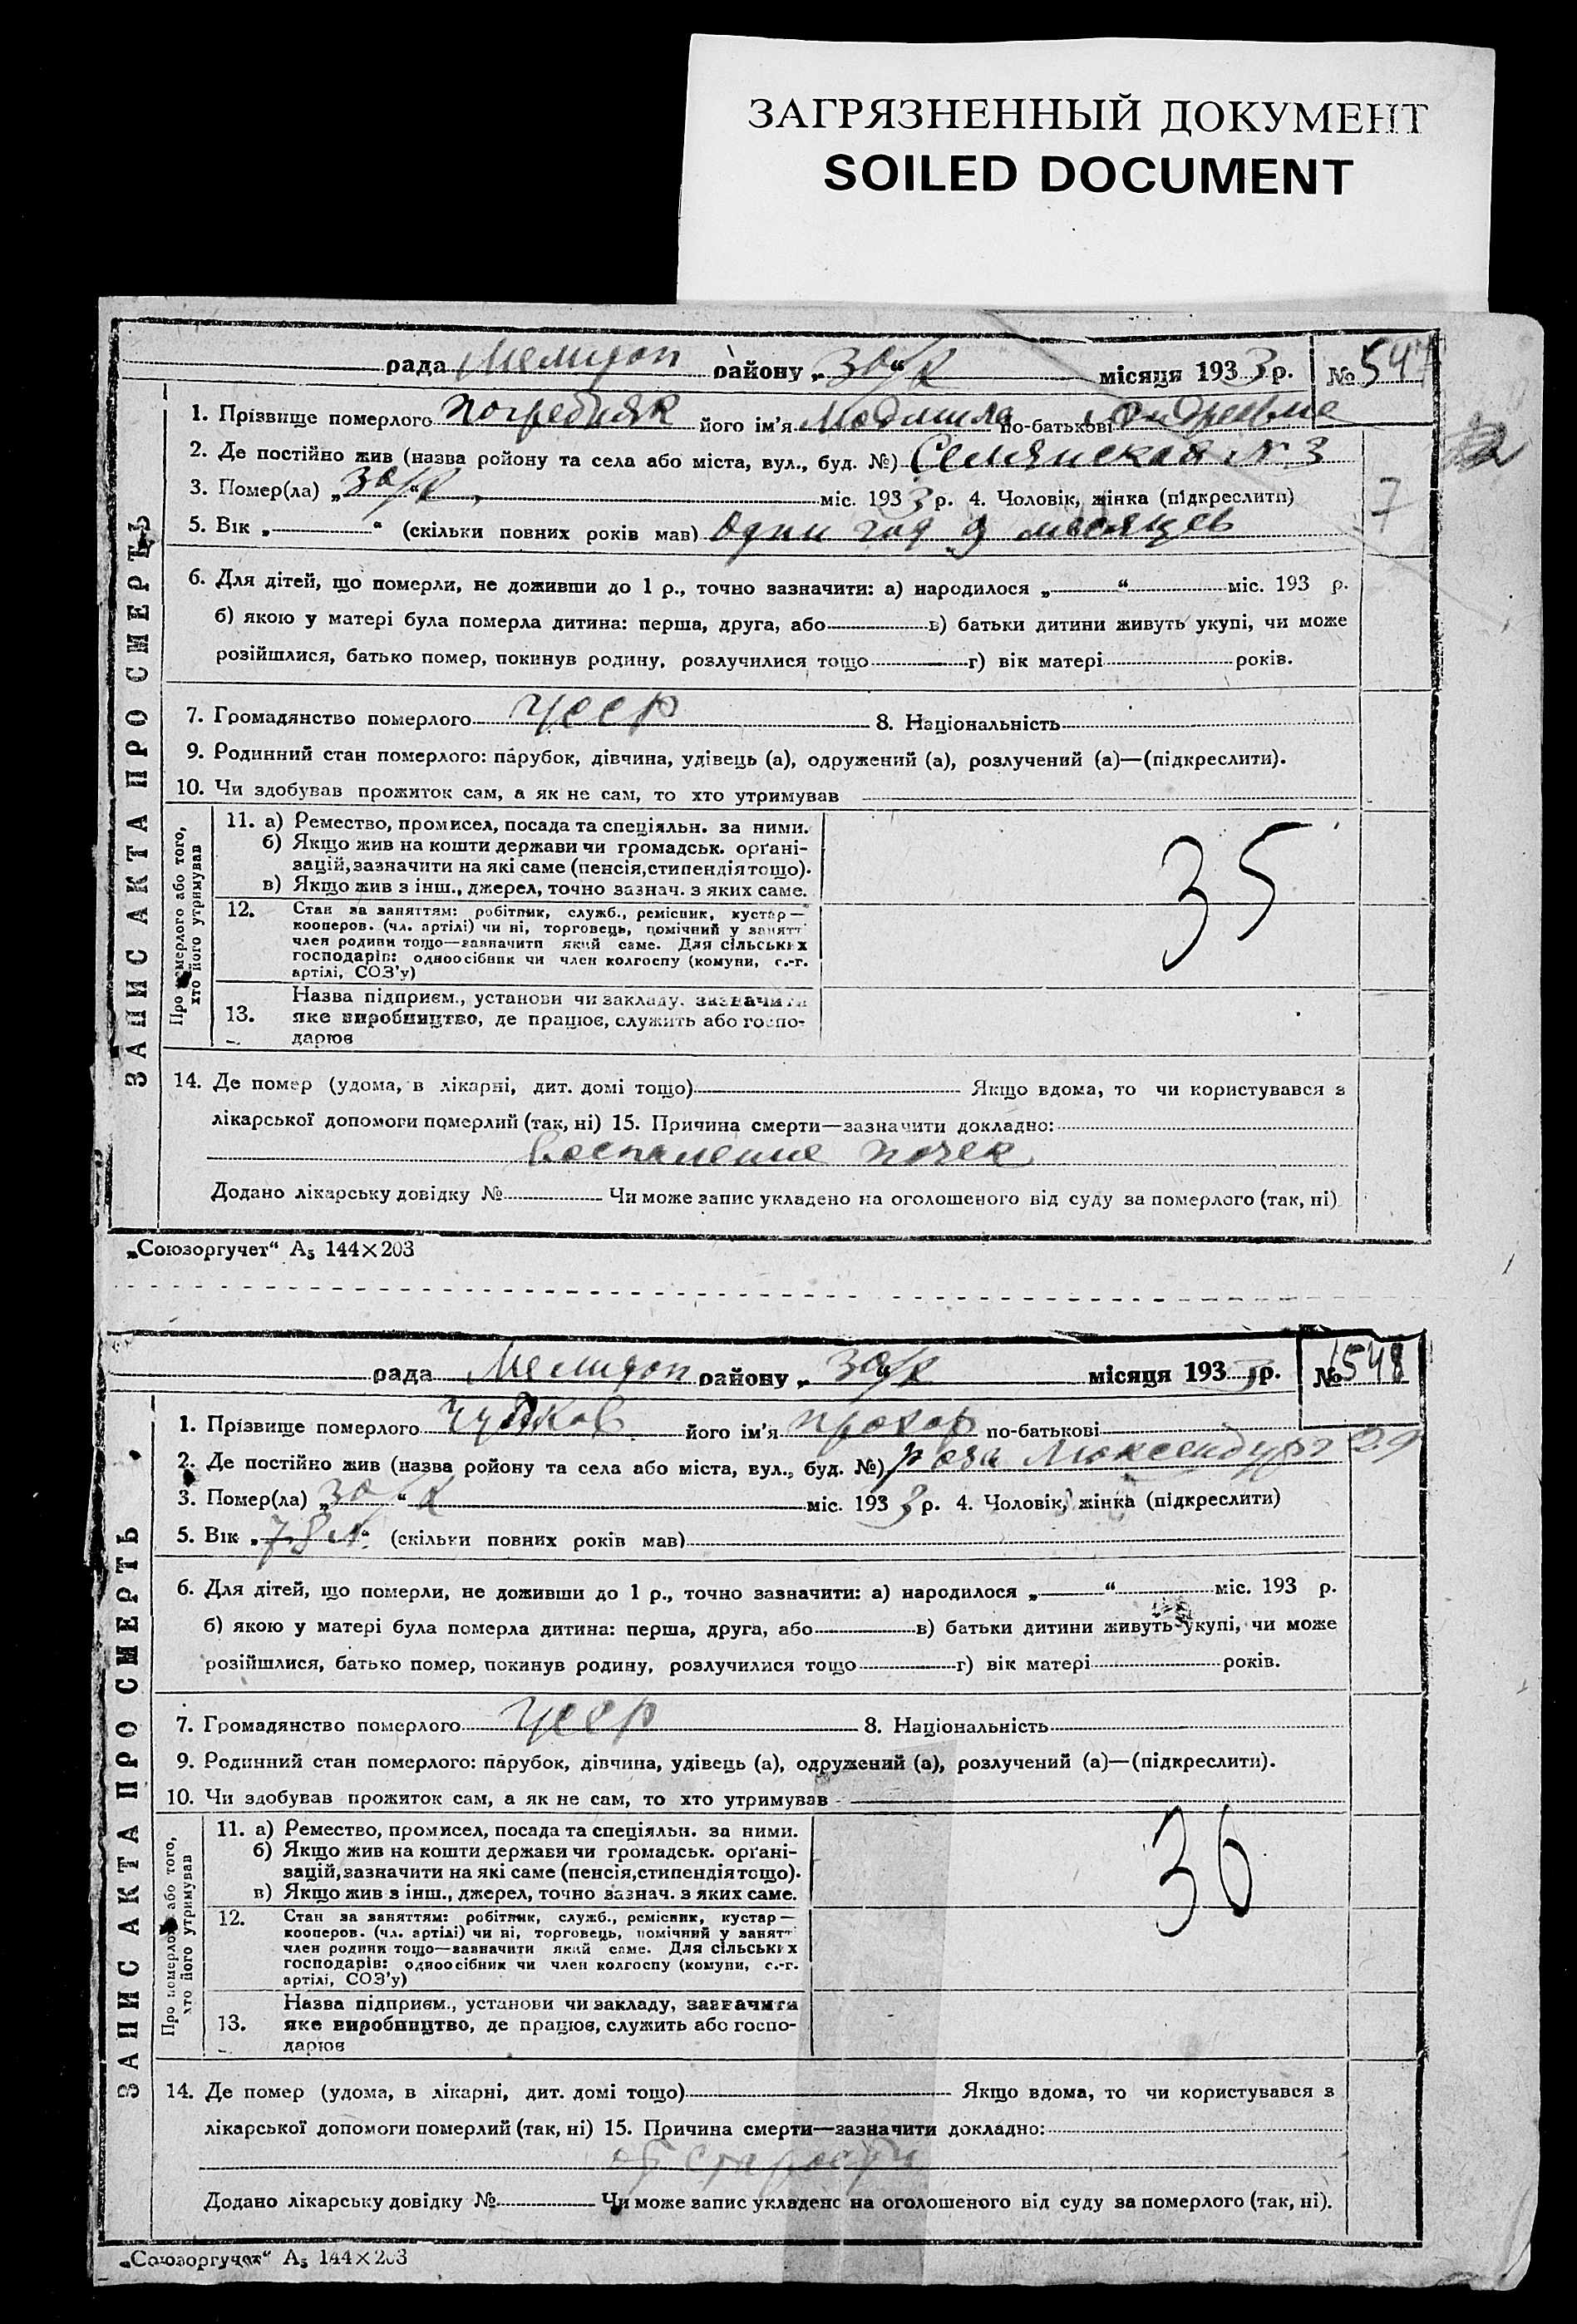 ЗАГРЯЗНЕННЫЙ ДОКУМЕНТ
SOILED DOCUMENT
рада Мелитоп району „30/X“ місяця 1933 р. № 547
1. Прізвище померлого Погребняк його ім'я Людмила по-батькові Андреевна
2. Де постійно жив (назва ройону та села або міста, вул., буд. №) Семянская № 3
3. Помер(ла) „30/X“ міс. 1933 р. 4. Чоловік, жінка (підкреслити)
7
5. Вік „ “ (скільки повних років мав) Один год 9 месяцев
6. Для дітей, що померли, не доживши до 1 р., точно зазначити: а) народилося „ “ міс. 193 р.
б) якою у матері була померла дитина: перша, друга, або в) батьки дитини живуть укупі, чи може
розійшлися, батько помер, покинув родину, розлучилися тощо г) вік матері років.
7. Громадянство померлого УССР 8. Національність
9. Родинний стан померлого: парубок, дівчина, удівець (а), одружений (а), розлучений (а)—(підкреслити).
10. Чи здобував прожиток сам, а як не сам, то хто утримував
Про померлого або того, хто його утримував
11. а) Ремество, промисел, посада та спеціяльн. за ними.
б) Якщо жив на кошти держави чи громадськ. органі-
зацій, зазначити на які саме (пенсія, стипендія тощо).
в) Якщо жив з інш., джерел, точно зазнач. з яких саме.
35
12. Стан за заняттям: робітник, служб., ремісник, кустар—
кооперов. (чл. артілі) чи ні, торговець, помічний у занятт
член родини тощо—зазначити який саме. Для сільських
господарів: одноосібник чи член колгоспу (комуни, с.-г.
артілі, СОЗ'у)
13. Назва підприєм., установи чи закладу, зазначити
яке виробництво, де працює, служить або госпо-
дарює
14. Де помер (удома, в лікарні, дит. домі тощо) Якщо вдома, то чи користувався з
лікарської допомоги померлий (так, ні) 15. Причина смерти—зазначити докладно:
Воспаление почек
Додано лікарську довідку № Чи може запис укладено на оголошеного від суду за померлого (так, ні)
ЗАПИС АКТА ПРО СМЕРТЬ
„Союзоргучет“ А5 144×203
рада Мелитоп району „30/X“ місяця 1933 р. № 548
1. Прізвище померлого його ім'я Прохор по-батькові
2. Де постійно жив (назва ройону та села або міста, вул., буд. №) Роза Люксембург 29
3. Помер(ла) „30/X“ міс. 1933 р. 4. Чоловік, жінка (підкреслити)
5. Вік „78 л.“ (скільки повних років мав)
6. Для дітей, що померли, не доживши до 1 р., точно зазначити: а) народилося „ “ міс. 193 р.
б) якою у матері була померла дитина: перша, друга, або в) батьки дитини живуть укупі, чи може
розійшлися, батько помер, покинув родину, розлучилися тощо г) вік матері років.
7. Громадянство померлого УССР 8. Національність
9. Родинний стан померлого: парубок, дівчина, удівець (а), одружений (а), розлучений (а)—(підкреслити).
10. Чи здобував прожиток сам, а як не сам, то хто утримував
Про померлого або того, хто його утримував
11. а) Ремество, промисел, посада та спеціяльн. за ними.
б) Якщо жив на кошти держави чи громадськ. органі-
зацій, зазначити на які саме (пенсія, стипендія тощо).
в) Якщо жив з інш., джерел, точно зазнач. з яких саме.
36
12. Стан за заняттям: робітник, служб., ремісник, кустар—
кооперов. (чл. артілі) чи ні, торговець, помічний у занятт
член родини тощо—зазначити який саме. Для сільських
господарів: одноосібник чи член колгоспу (комуни, с.-г.
артілі, СОЗ'у)
13. Назва підприєм., установи чи закладу, зазначити
яке виробництво, де працює, служить або госпо-
дарює
14. Де помер (удома, в лікарні, дит. домі тощо) Якщо вдома, то чи користувався з
лікарської допомоги померлий (так, ні) 15. Причина смерти—зазначити докладно:
от старости
Додано лікарську довідку № Чи може запис укладено на оголошеного від суду за померлого (так, ні).
ЗАПИС АКТА ПРО СМЕРТЬ
„Союзоргучет“ А5 144×203